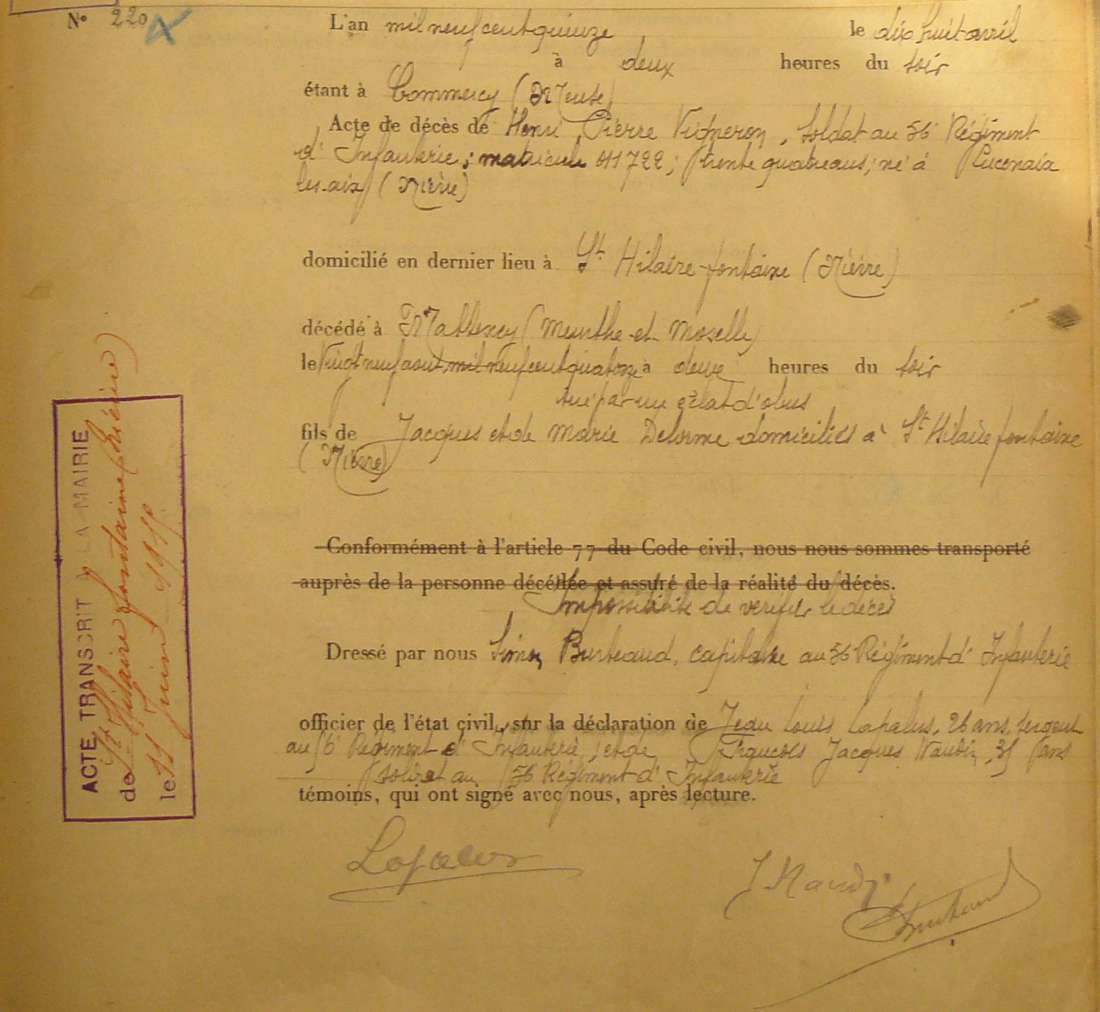 N° 220
L'an mil neuf cent quinze le dix huit avril
à deux heures du soir
étant à Commercy (Meuse)
Acte de décès de Henri Pierre Vigneron, soldat au 56e Régiment
d'Infanterie; matricule 011722; trente quatre ans; né à Lucenaix
les-aix (Nièvre)
domicilié en dernier lieu à St Hilaire-fontaine (Nièvre)
décédé à Mattexey (Meurthe-et-Moselle)
le vingt neuf aout mil neuf cent quatorze à deux heures du soir
tué par un éclat d'obus
fils de Jacques et de Marie Delorme domiciliés à St Hilaire fontaine
(Nièvre)
Conformément à l'article 77 du Code civil, nous nous sommes transporté
auprès de la personne décédée et assuré de la réalité du décès.
Impossibilité de vérifier le décès
Dressé par nous Simon Burteaud, capitaine au 56 Régiment d'Infanterie
officier de l'état civil, sur la déclaration de Jean Louis Lapalus, 26 ans, sergent
au 56e Régiment d'Infanterie, et de François Jacques 35 ans
soldat au 56 Régiment d'Infanterie
témoins, qui ont signé avec nous, après lecture.
Lapalus
ACTE TRANSCRIT A LA MAIRIE
de St Hilaire Fontaine (Nièvre)
le Juin 1915